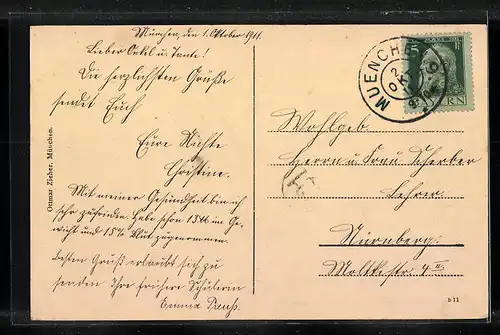 München, den 1. Oktober 1911.
Lieber Onkel u. Tante!
Die herzlichsten Grüße
sendet Euch
Eure Nichte
Christine.
Mit meiner Gesundheit bin ich
sehr zufrieden. Habe schon 15 ℔ im Ge-
wicht und 15% Blut zugenommen.
Besten Gruß erlaubt sich zu
senden Ihre frühere Schülerin
Emma Preuß.
Ottmar Zieher, München.
MUENCHEN
BAYERN
Wohlgeb.
Herrn u. Frau Scherber
Lehrer
Nürnberg.
Moltkestr. 4 III.
b 11